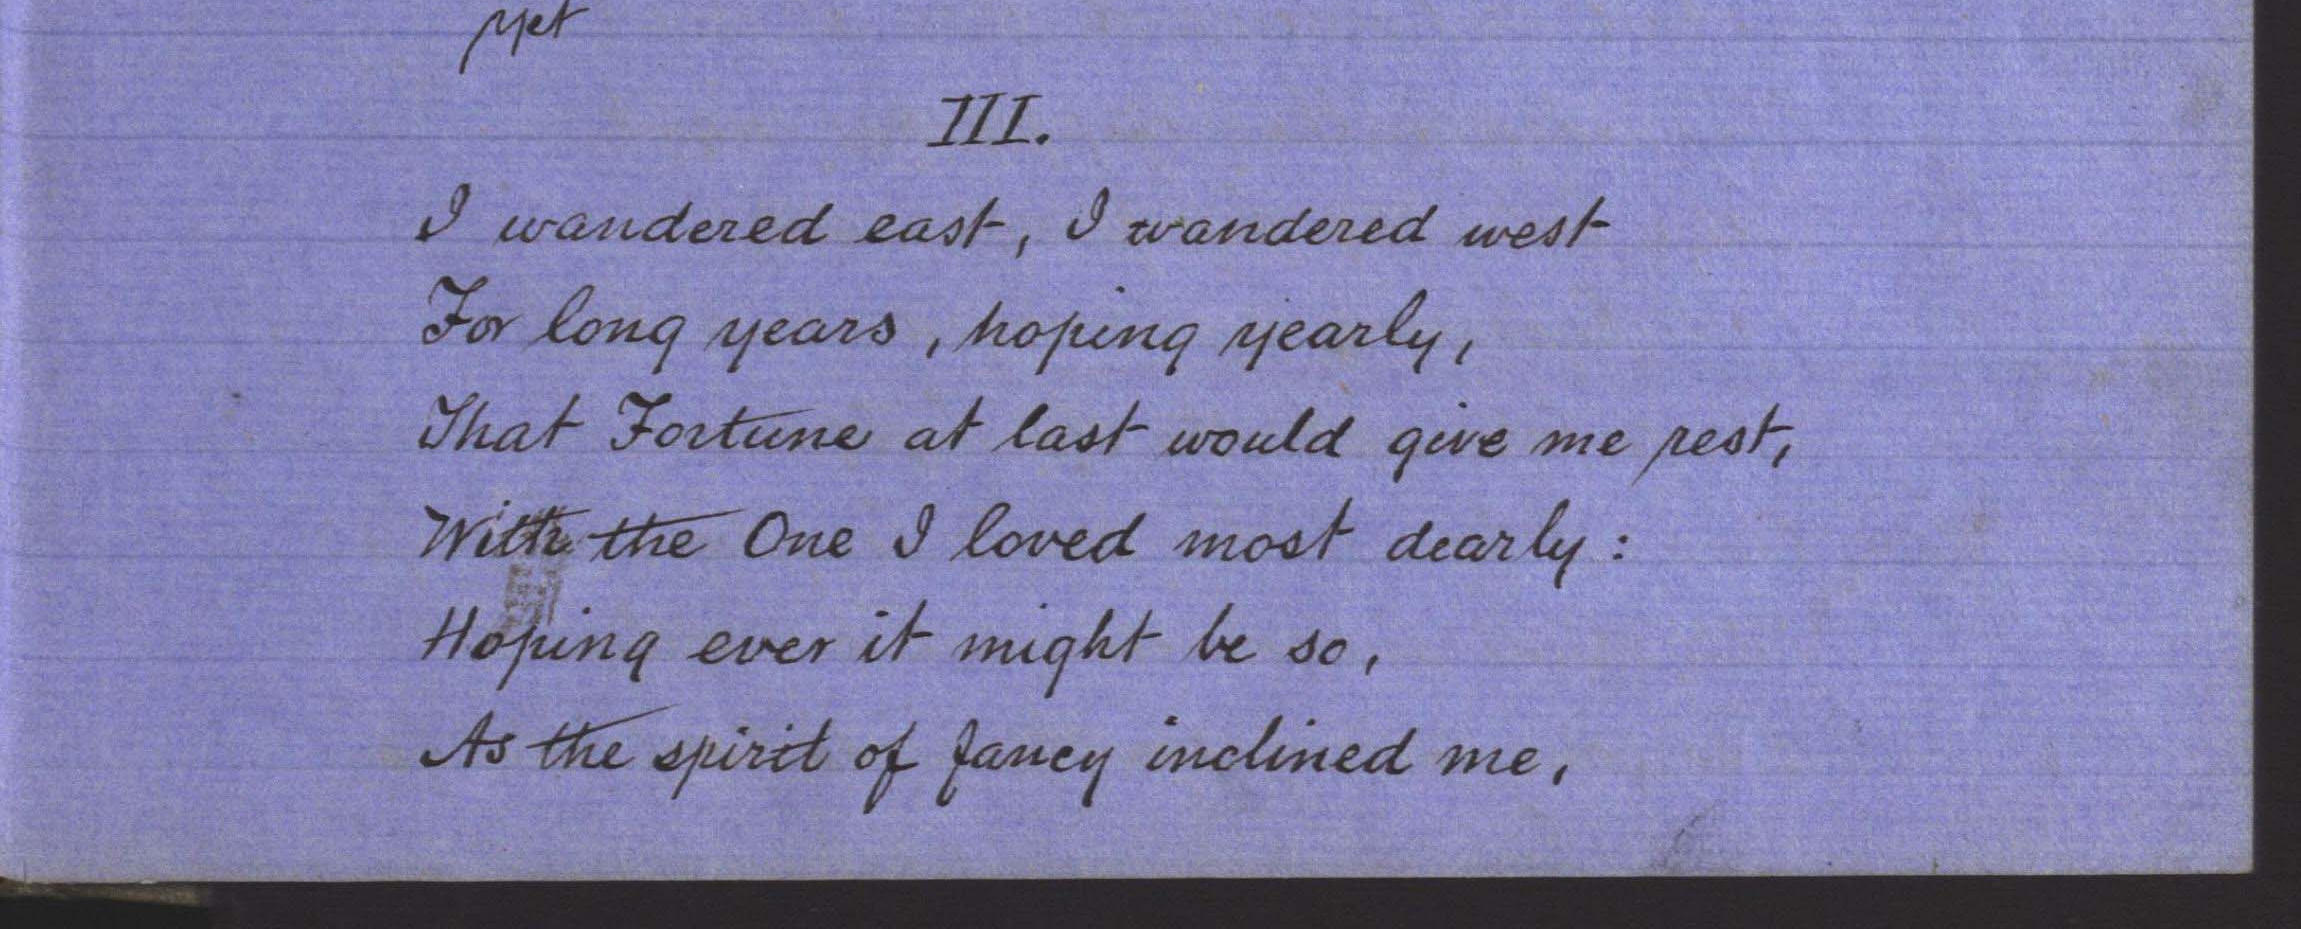 yet
III.
I wandered east, I wandered west
For long years, hoping yearly,
That Fortune at last would give me rest,
With the One I loved most dearly:
Hoping ever it might be so,
As the spirit of fancy inclined me,